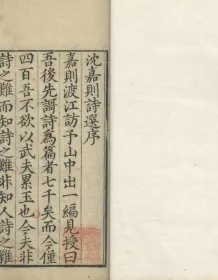 沈嘉則詩選序
嘉則渡江訪予山中出一編見授曰
吾後先諷詩爲篇者七千矣而今僅
四百吾不欲以武夫累玉也今夫非
詩之難而知詩之難非知人詩之